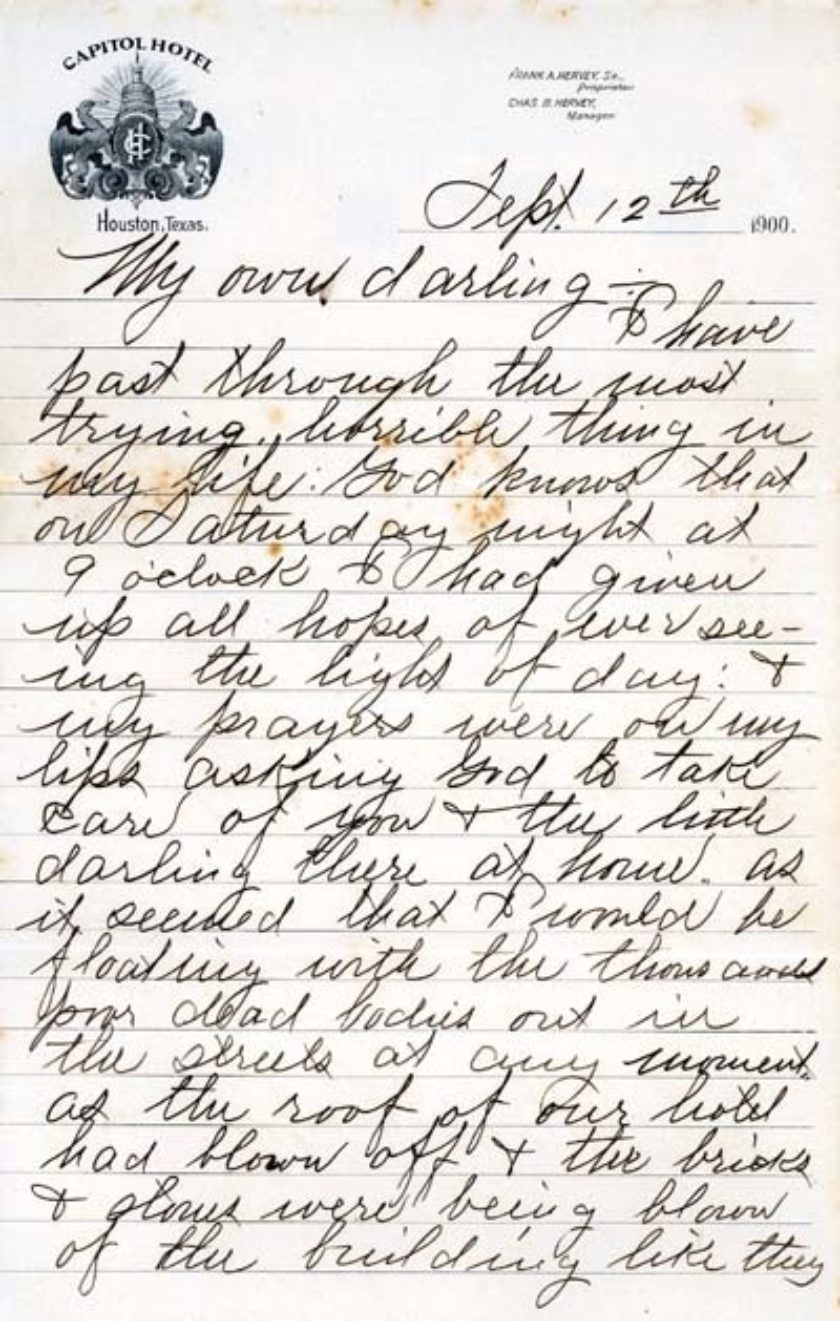 CAPITOL HOTEL
Houston, Texas.
FRANK A. HERVEY, Sr.,
Proprietor
CHAS. B. HERVEY,
Manager
Sept. 12th 1900.
My own darling:-
I have
past through the most
trying, horrible thing in
my life: God knows that
on Saturday night at
9 o'clock I had given
up all hopes of ever see-
ing the light of day: &
my prayers were on my
lips asking God to take
care of you & the little
darling there at home. as
it seemed that I would be
floating with the thousand
poor dead bodies out in
the streets at any moment.
as the roof of our hotel
had blown off & the bricks
& stones were being blown
of the building like they